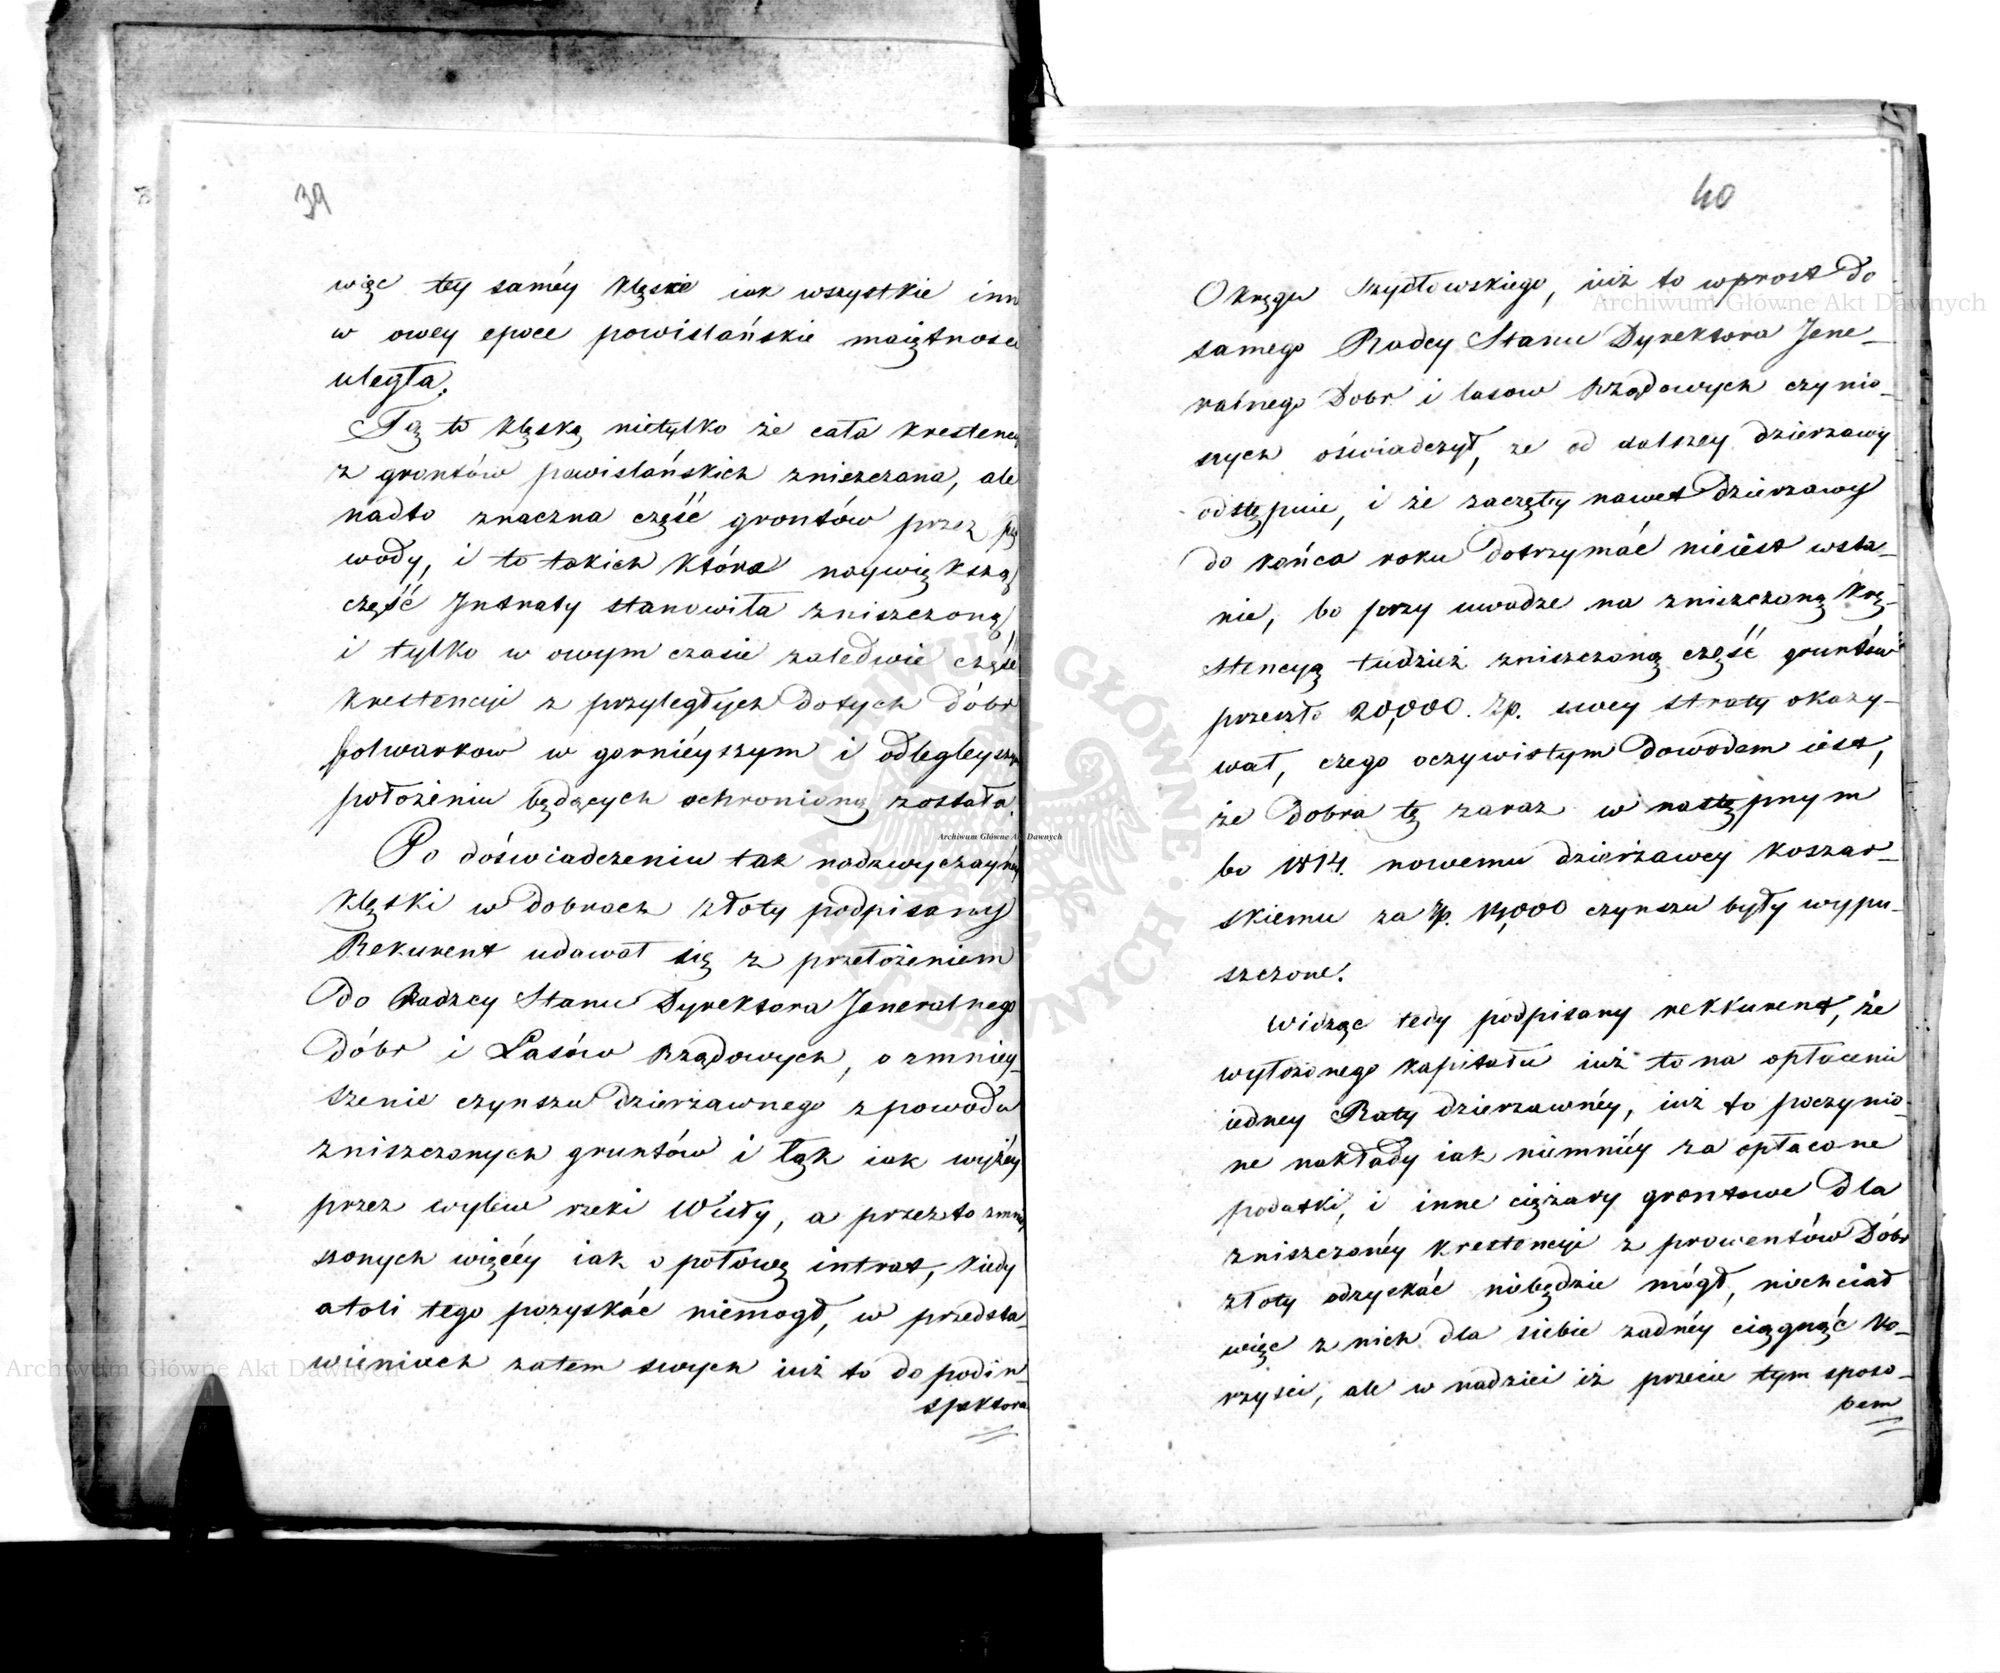 39
więc tey saméy klęskie iak wszystkie inn
w owey epoce powislańskie maiętnosci
uległa.
Tą to klęską nietylko że cała krestency
z grontów powislańskich zniszczana, ale
nadto znaczna część grontów przez
wody, i to takich która naywiększą
część Intraty stanowiła zniszczoną,
i tylko w owym czasie zaledwie część
krestencyi z przyległych dotych dóbr
folwarkow w gorniéyszym i odlegleyszym
położeniu będących ochronioną została.
Po doświadczeniu tak nadzwyczayney
klęski w dobrach Złoty podpisany
Rekurent udawał się z przełożeniem
do Radzcy Stanu Dyrektora Jeneralnego
dóbr i Lasów rządowych, o zmniey-
szenie czynszu dzierzawnego z powodu
zniszczonych gruntów i łąk iak wyżéy
przez wylew rzeki Wisły, a przezto zmniey
szonych więcéy iak o połowę intrat, kiedy
atoli tego pozyskać niemogł, w przedsta-
wieniach zatem swych iuż to do podin-
spektora
40
Okręgu Szydłowskiego, iuż to wprost do
samego Radcy Stanu Dyrektora Jene-
ralnego Dobr i lasow Rządowych czynio-
nych oświadczył, ze od dalszey dzierzawy
odstępuie, i że zaczętey nawet dzierzawy
do końca roku dotrzymać nieiest wsta-
nie, bo przy uwadze na zniszczoną kre-
stencyą tudzież zniszczoną część gruntów
przeszło 20,000. Zp. swey straty okazy-
wał, czego oczywistym dowodem iest,
że Dobra tę zaraz w następnym
bo 1814. nowemu dzierżawcy Koszar-
skiemu za Zp. 14,000 czynszu były wypu-
szczone.
Widząc tedy podpisany rekkurent, że
wyłożonego kapitału iuż to na opłacenie
iedney Raty dzierzawnéy, iuż to poczynio-
ne nakłady iak niemniéy za opłacone
podatki, i inne ciężary grontowe dla
zniszczonéy krestencyi z prowentów Dóbr
Złoty odzyskać niebędzie mógł, niechciał
więc z nich dla siebie żadnéy ciągnąć ko-
rzysci, ale w nadziei iż przecie tym sposo-
bem
Archiwum Główne Akt Dawnych
Archiwum Główne Akt Dawnych
Archiwum Główne Akt Dawnych
ARCHIWUM GŁÓWNE AKT DAWNYCH